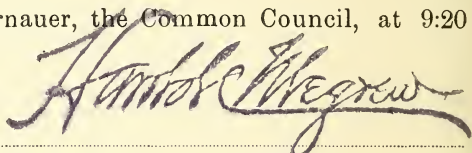 rnauer, the Common Council, at 9:20
Megrew